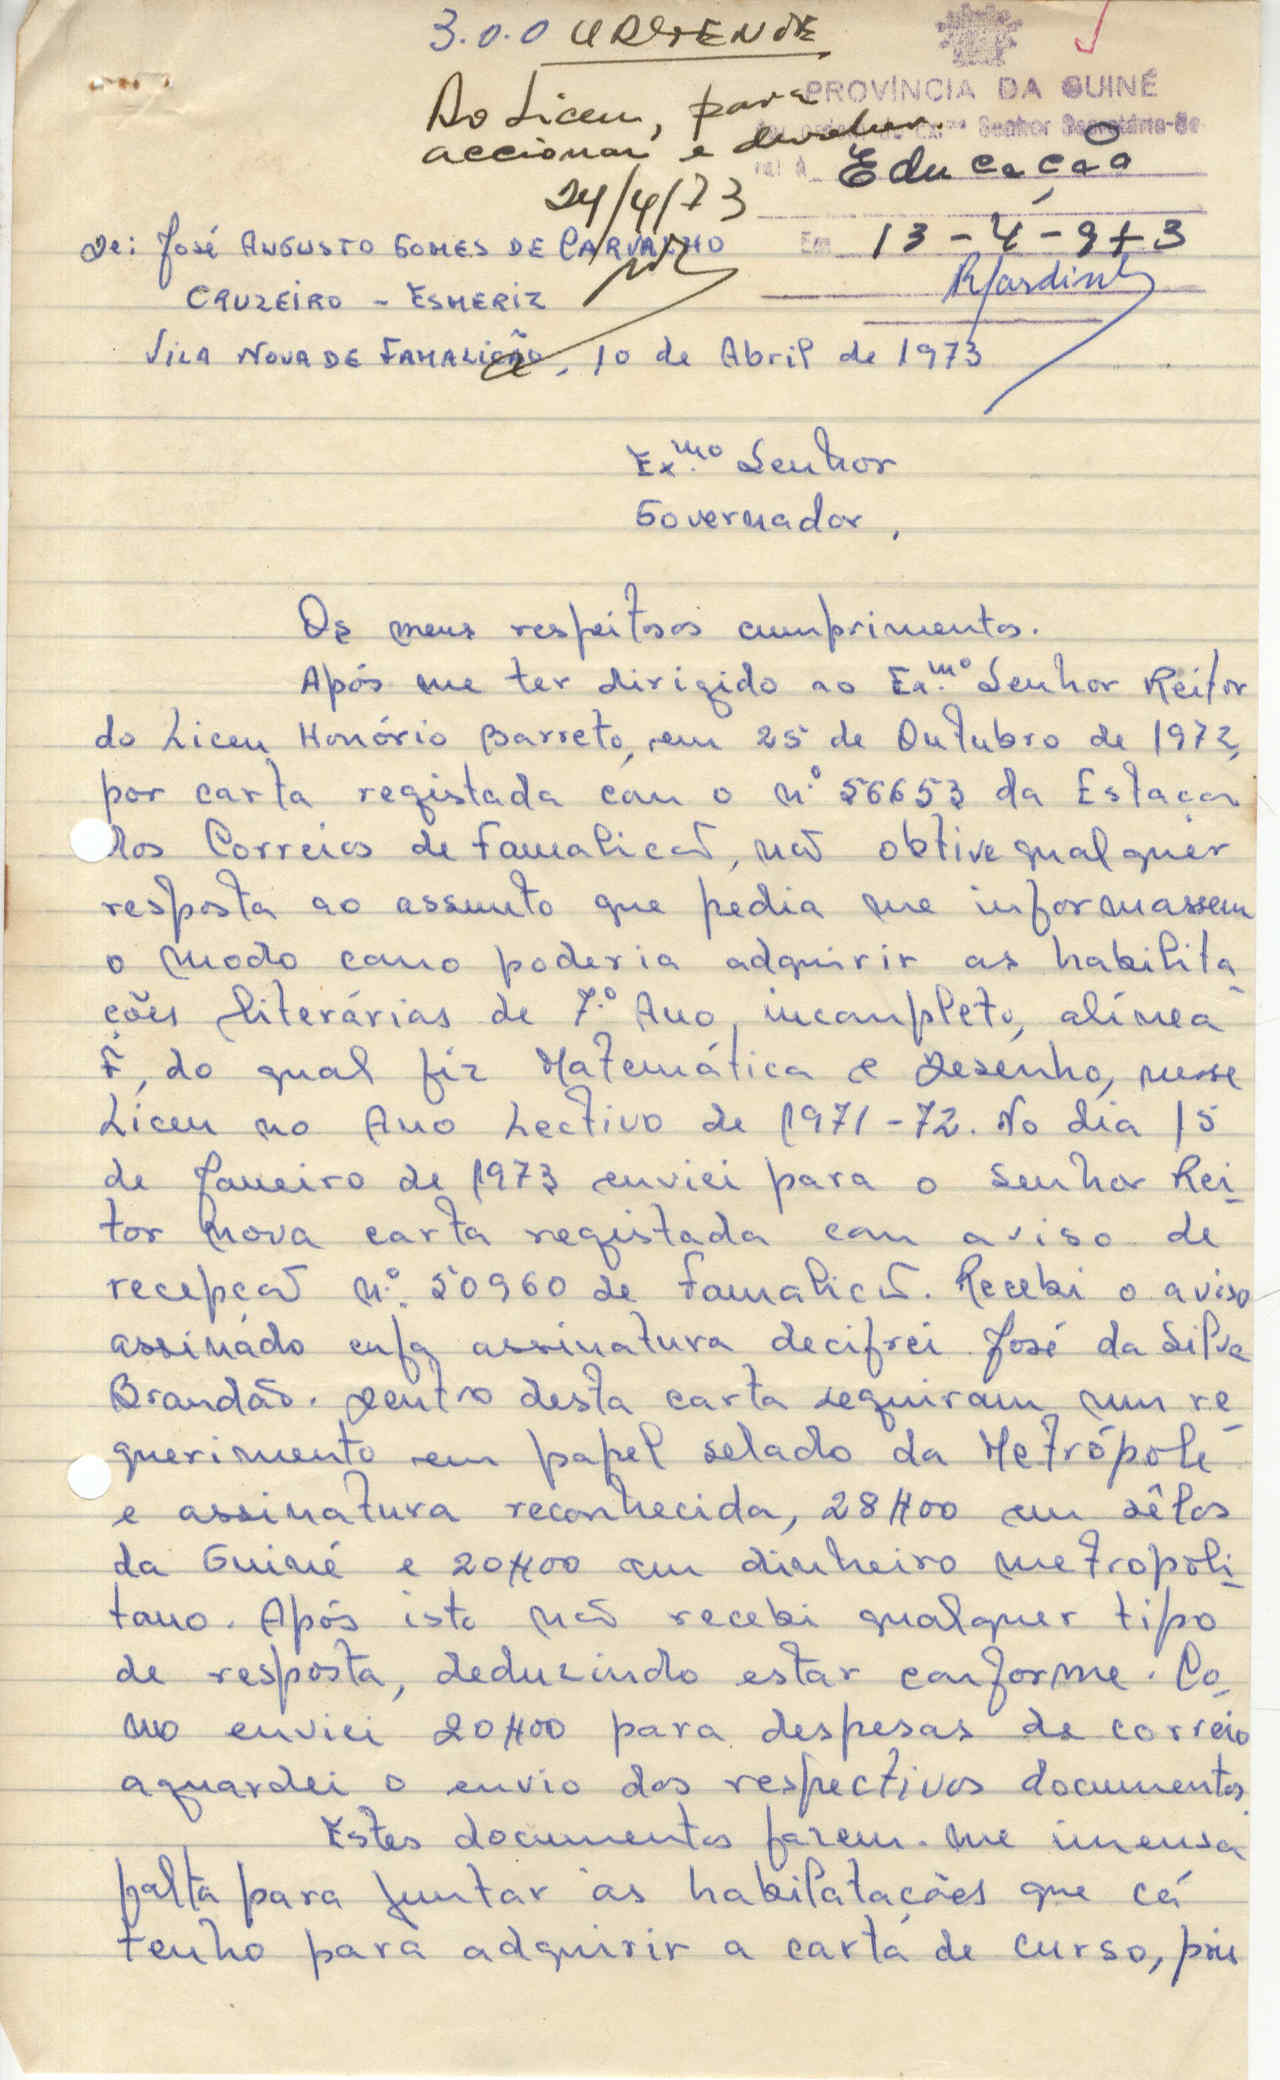 3.0.0 URGENTE
Ao Liceu, para
accionar e devolver.
24/4/73
PROVÍNCIA DA GUINÉ
Senhor Secretário-Ge-
ral à Educação
Em 13-4-973
De: José Augusto Gomes de Carvalho
Cruzeiro - Esmeriz
Vila Nova de Famalicão, 10 de Abril de 1973
Ex.mo Senhor
Governador,
Os meus respeitosos cumprimentos.
Após me ter dirigido ao Ex.mo Senhor Reitor
do Liceu Honório Barreto, em 25 de Outubro de 1972,
por carta registada com o n.º 56653 da Estação
dos Correios de Famalicão, não obtive qualquer
resposta ao assunto que pedia me informassem
o modo como poderia adquirir as habilita-
ções literárias de 7.º Ano, incompleto, alínea
F, do qual fiz Matemática e Desenho, nesse
Liceu no Ano Lectivo de 1971-72. No dia 15
de Janeiro de 1973 enviei para o Senhor Rei-
tor nova carta registada com aviso de
recepção n.º 50960 de Famalicão. Recebi o aviso
assinado cuja assinatura decifrei José da Silva
Brandão. Dentro desta carta seguiram um re-
querimento em papel selado da Metrópole
e assinatura reconhecida, 28$00 em sêlos
da Guiné e 20$00 em dinheiro metropoli-
tano. Após isto não recebi qualquer tipo
de resposta, deduzindo estar conforme. Co-
mo enviei 20$00 para despesas de correio
aguardei o envio dos respectivos documentos.
Estes documentos fazem-me imensa
falta para juntar às habilatações que cá
tenho para adquirir a carta de curso, pois